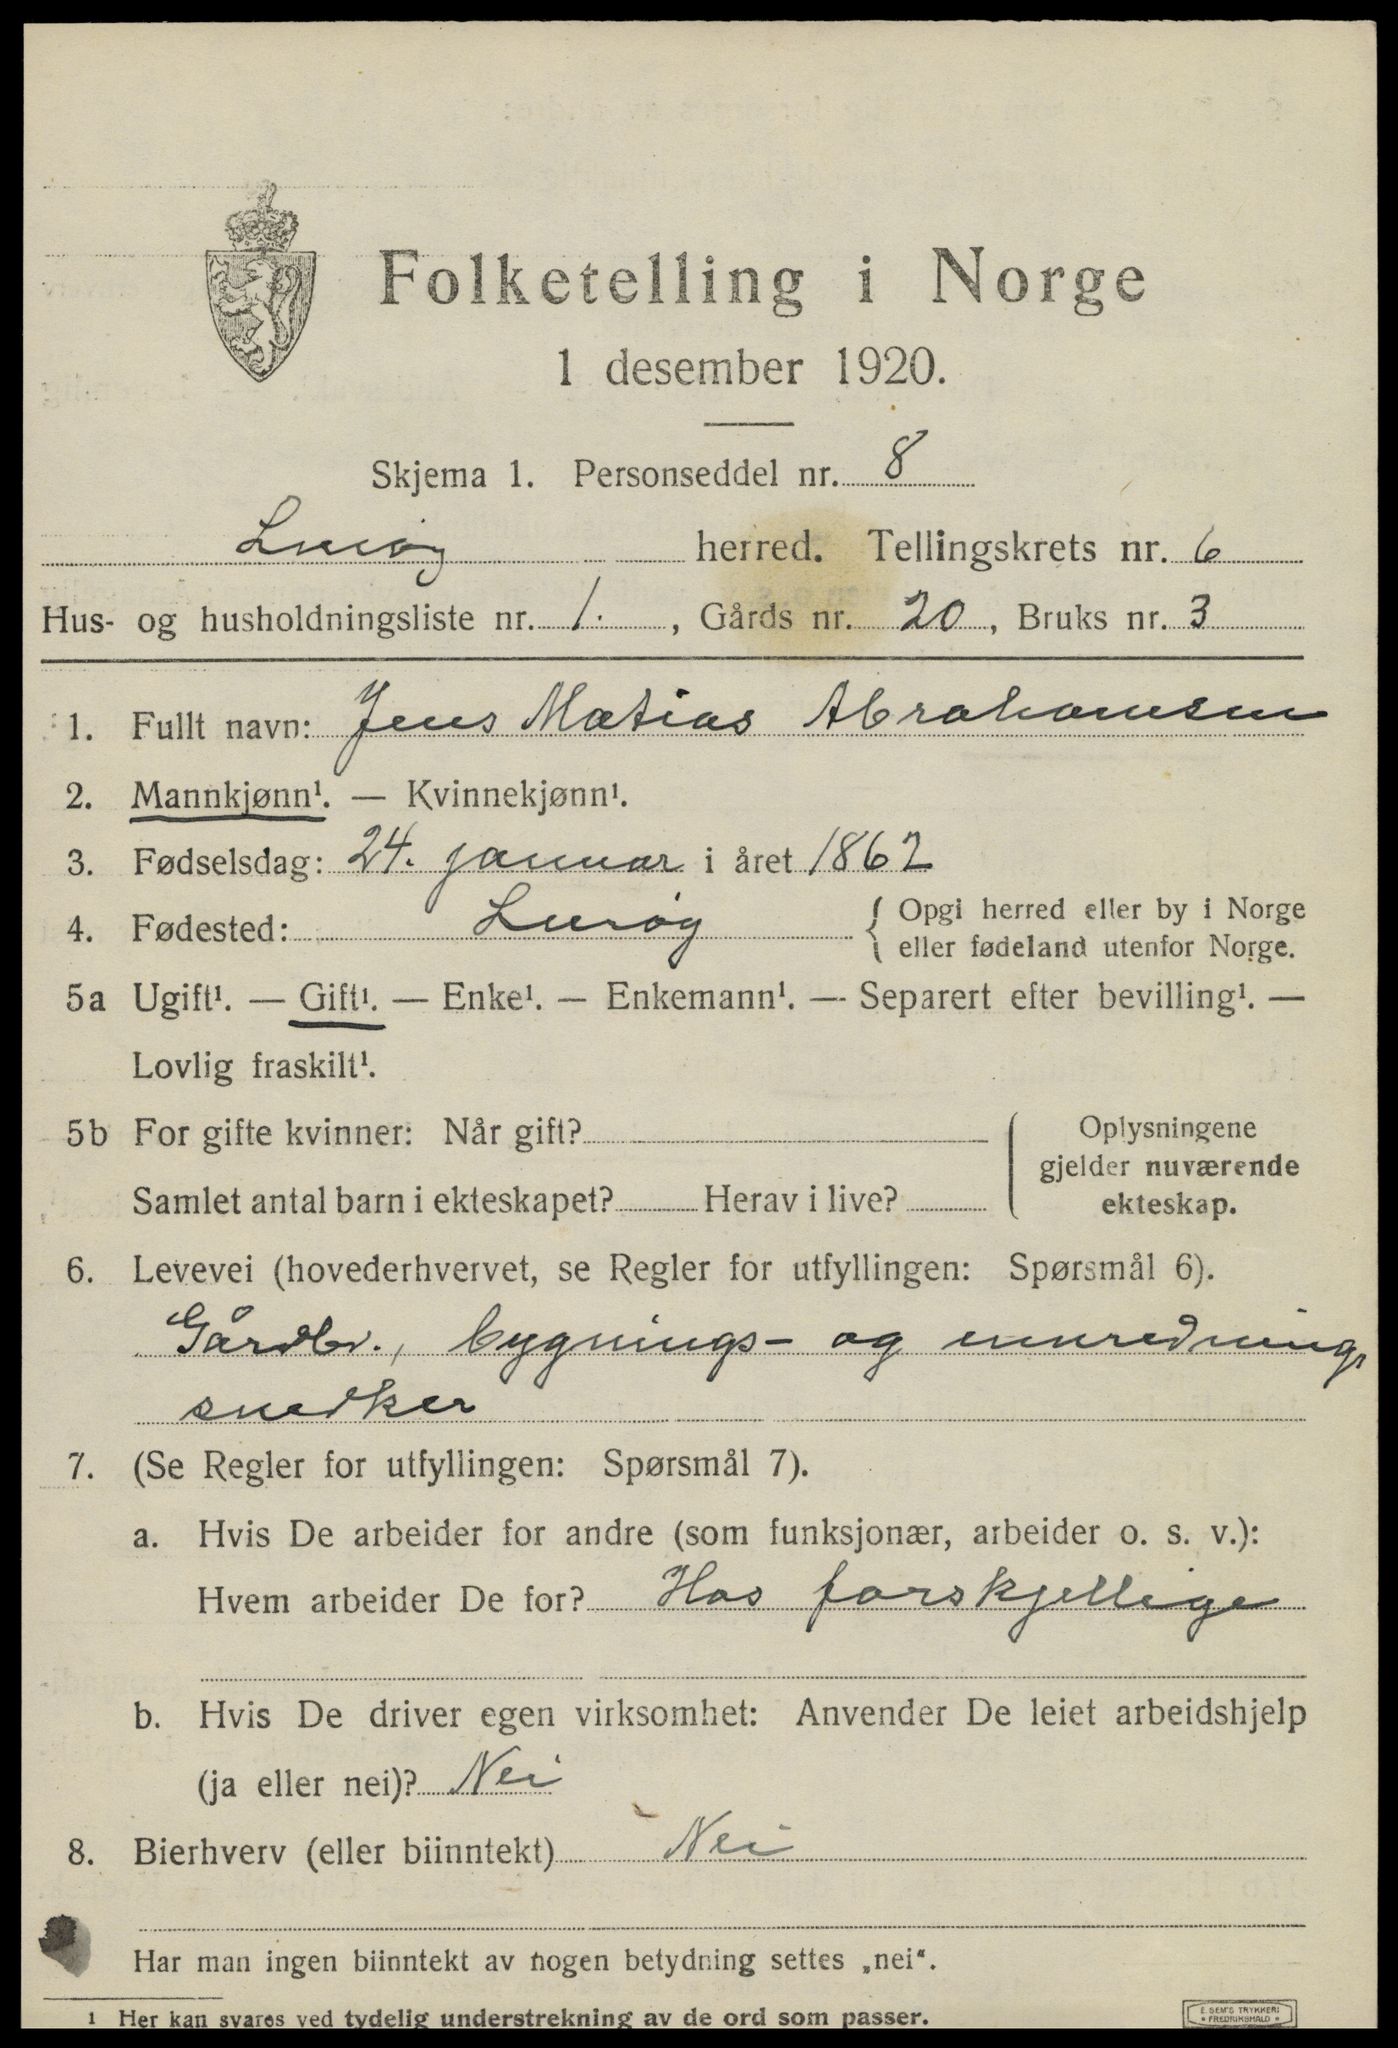 Folketelling i Norge
1 desember 1920.
Skjema 1. Personseddel nr. 8
Lurøy herred. Tellingskrets nr. 6
Hus- og husholdningsliste nr. 1. , Gårds nr. 20, Bruks nr. 3
1. Fullt navn: Jens Matias Abrahamsen
2. Mannkjønn¹. — Kvinnekjønn¹.
3. Fødselsdag: 24. januar i året 1862
4. Fødested: Lurøy { Opgi herred eller by i Norge
eller fødeland utenfor Norge.
5a Ugift¹. — Gift¹. — Enke¹. — Enkemann¹. — Separert efter bevilling¹. —
Lovlig fraskilt¹.
5b For gifte kvinner: Når gift?
Samlet antal barn i ekteskapet? Herav i live?
Oplysningene
gjelder nuværende
ekteskap.
6. Levevei (hovederhvervet, se Regler for utfyllingen: Spørsmål 6).
Gårdbr., bygnings- og innrednings
snedker
7. (Se Regler for utfyllingen: Spørsmål 7).
a. Hvis De arbeider for andre (som funksjonær, arbeider o. s. v.):
Hvem arbeider De for? Hos forskjellige
b. Hvis De driver egen virksomhet: Anvender De leiet arbeidshjelp
(ja eller nei)? Nei
8. Bierhverv (eller biinntekt) Nei
Har man ingen biinntekt av nogen betydning settes „nei“.
1 Her kan svares ved tydelig understrekning av de ord som passer.
E. SEM'S TRYKKERI
* FREDRIKSHALD *